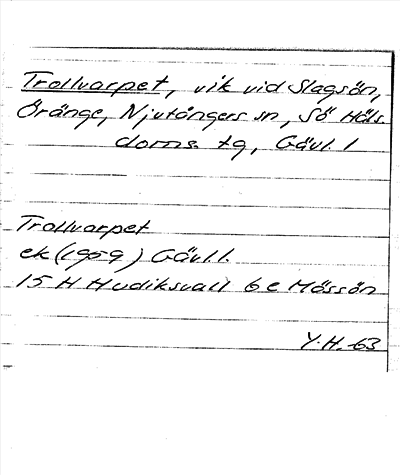 Trollvarpet, vik vid Slagsön,
Öränge, Njutångers sn, Sö Häls.
doms. tg, Gävl. l
Trollvarpet
ek (1959) Gävll.
15 H Hudiksvall 6 e Mössön
Y.H.-63